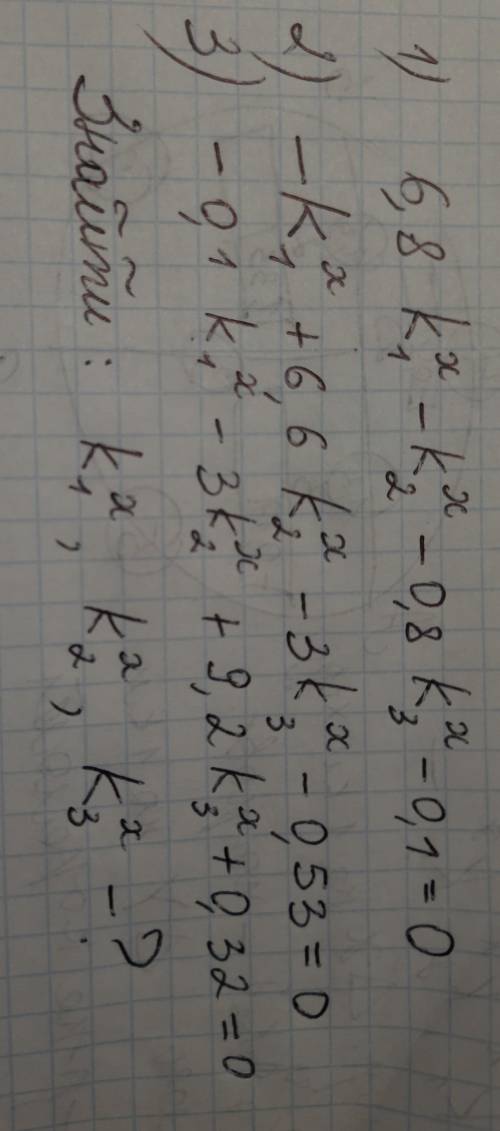 1) 6,8 k₁ˣ - k₂ˣ - 0,8 k₃ˣ - 0,1 = 0
2) - k₁ˣ + 6,6 k₂ˣ - 3k₃ˣ - 0,53 = 0
3) - 0,1 k₁ˣ - 3k₂ˣ + 9,2 k₃ˣ + 0,32 = 0
Знайти: k₁ˣ, k₂ˣ, k₃ˣ - ?